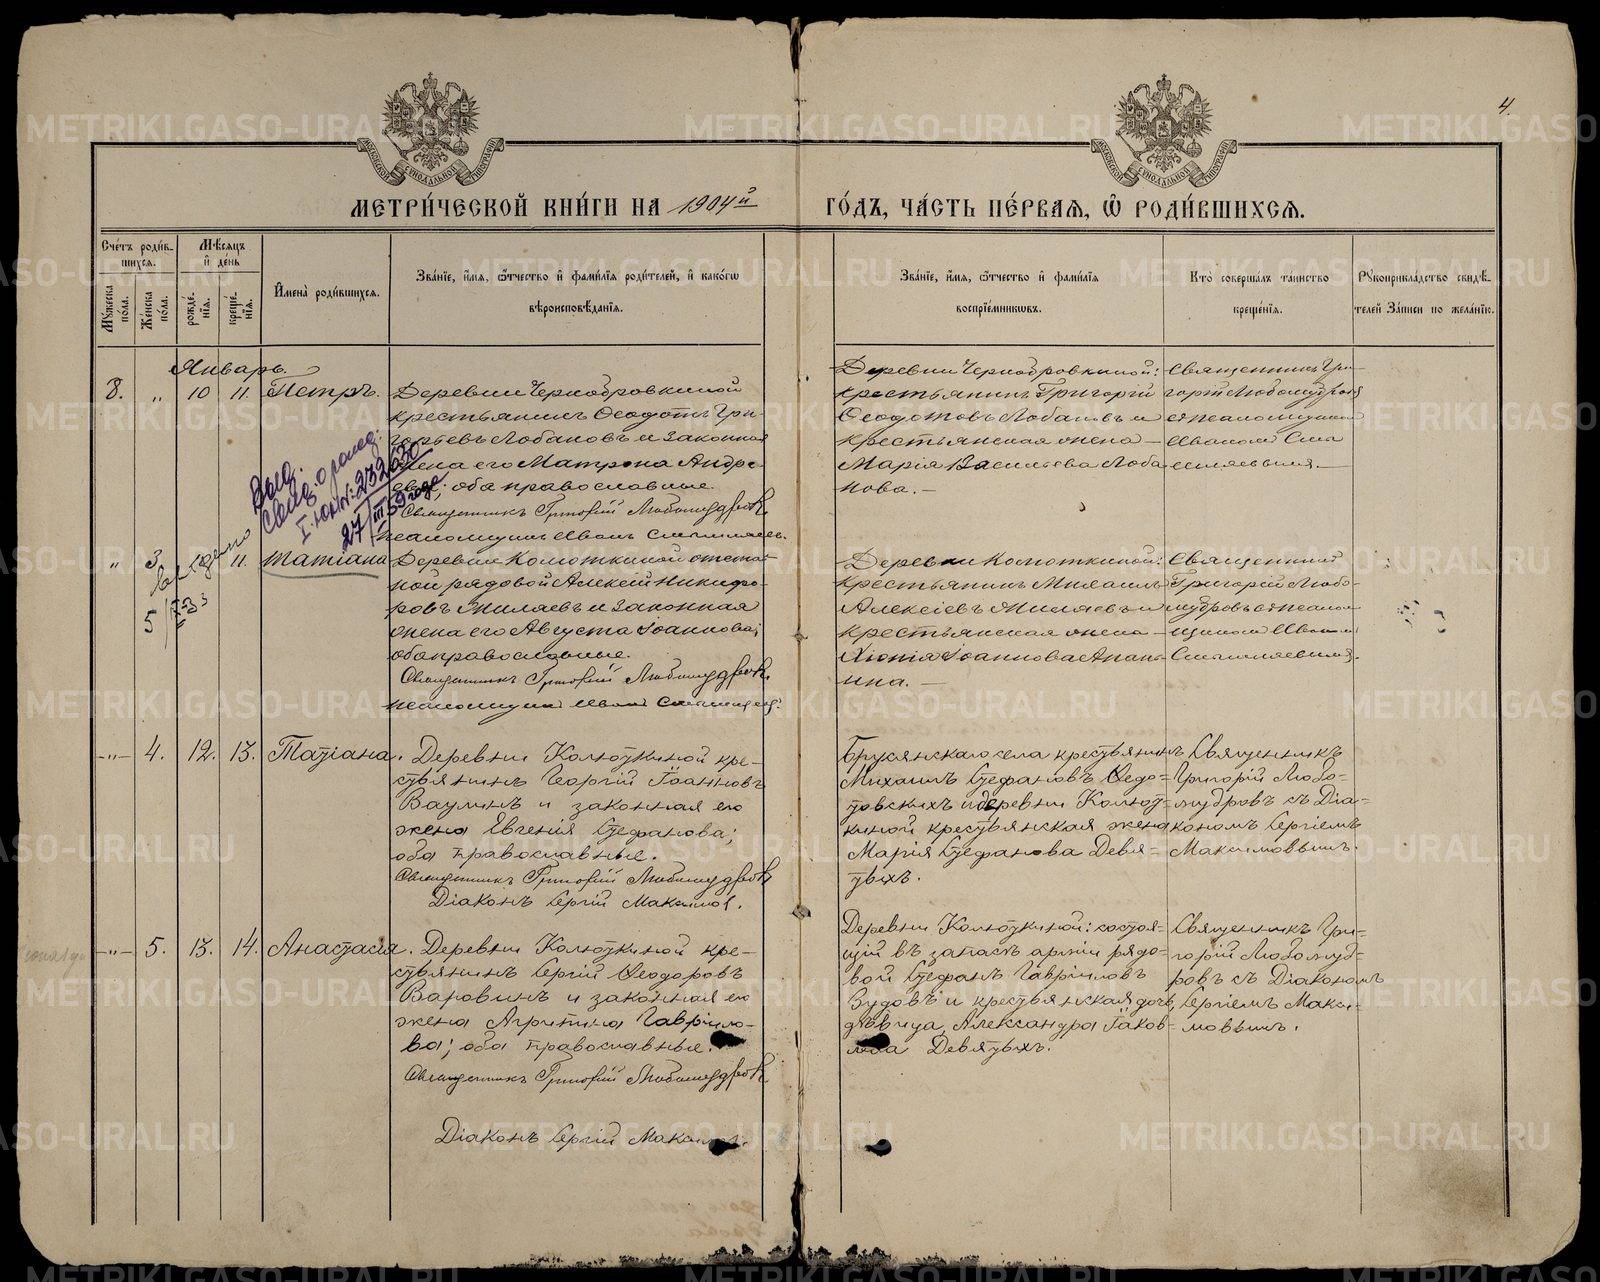 4.
МЕТРИ́ЧЕСКОЙ КНИ́ГИ НА 1904й ГО́ДЪ, ЧА́СТЬ ПЕ́РВАЯ, Ѿ РОДИ́ВШИХСЯ.
Сче́тъ роди́вшихся.
Му́жеска по́ла.
Же́нска по́ла.
Мѣ́сяцъ и҆ де́нь
рожде́нїя.
креще́нїя.
И҆мена̀ роди́вшихся.
Зва́нїе, и҆́мя, ѻ҆́тчество и҆ фами́лїя роди́телей, и҆ како́гѡ
вѣроисповѣ́данїя.
Зва́нїе, и҆́мя, ѻ҆́тчество и҆ фами́лїя
воспрїе́мникѡвъ.
Кто̀ соверша́лъ та́инство
креще́нїя.
Рꙋкоприкла́дство свидѣ́телей за́писи по жела́нїю.
Январь.
8. „ 10 11. Петръ.
Деревни Чернобровкиной
крестьянинъ Ѳеодотъ Гри-
горьевъ Лобановъ и законная
жена его Матрона Андре-
ева; оба православные.
Священникъ Григорій Любомудровъ
псаломщикъ Иванъ
Деревни Чернобровкиной:
крестьянинъ Григорій
Ѳеодотовъ Лобановъ и
крестьянская жена
Марія Васильева Лоба-
нова. —
Священникъ Гри-
горій Любомудровъ
съ псаломщикомъ
Иваномъ
Выд.
свид. о рожд.
I-ЮА №: 232630
27/III 59 года
„ 3 11. Татіана
5/
Деревни Колюткиной отстав-
ной рядовой Алексѣй Никифо-
ровъ Миляевъ и законная
жена его Августа Іоаннова;
оба православные.
Священникъ Григорій Любомудровъ
псаломщикъ Иванъ
Деревни Колюткиной:
крестьянинъ Михаилъ
Алексіевъ Миляевъ и
крестьянская жена
Хіонія Іоаннова
Священникъ
Григорій Любо-
мудровъ съ псалом-
щикомъ Иваномъ
-„- 4. 12. 13. Татіана.
Деревни Колюткиной кре-
стьянинъ Георгій Іоанновъ
Ваулинъ и законная его
жена Евгенія Стефанова;
оба православные.
Священникъ Григорій Любомудровъ
Діаконъ Сергій Максимов.
Брусянскаго села крестьянинъ
Михаилъ Стефановъ Ѳедо-
товскихъ и деревни Колют-
киной крестьянская жена
Марія Стефанова Девя-
тыхъ.
Священникъ
Григорій Любо-
мудровъ съ Діа-
кономъ Сергіемъ
Максимовымъ.
-„- 5. 13. 14. Анастасія.
Деревни Колюткиной кре-
стьянинъ Сергій Ѳеодоровъ
Варовинъ и законная его
жена Агрипина Гаврило-
ва; оба православные.
Священникъ Григорій Любомудровъ
Діаконъ Сергій Максимов.
Деревни Колюткиной: состоя-
щій въ запасѣ арміи рядо-
вой Стефанъ Гавриловъ
Зудовъ и крестьянская дочь,
дѣвица, Александра Іаков-
лева Девятыхъ.
Священникъ Гри-
горій Любомуд-
ровъ съ Діакономъ
Сергіемъ Макси-
мовымъ.
METRIKI.GASO-URAL.RU